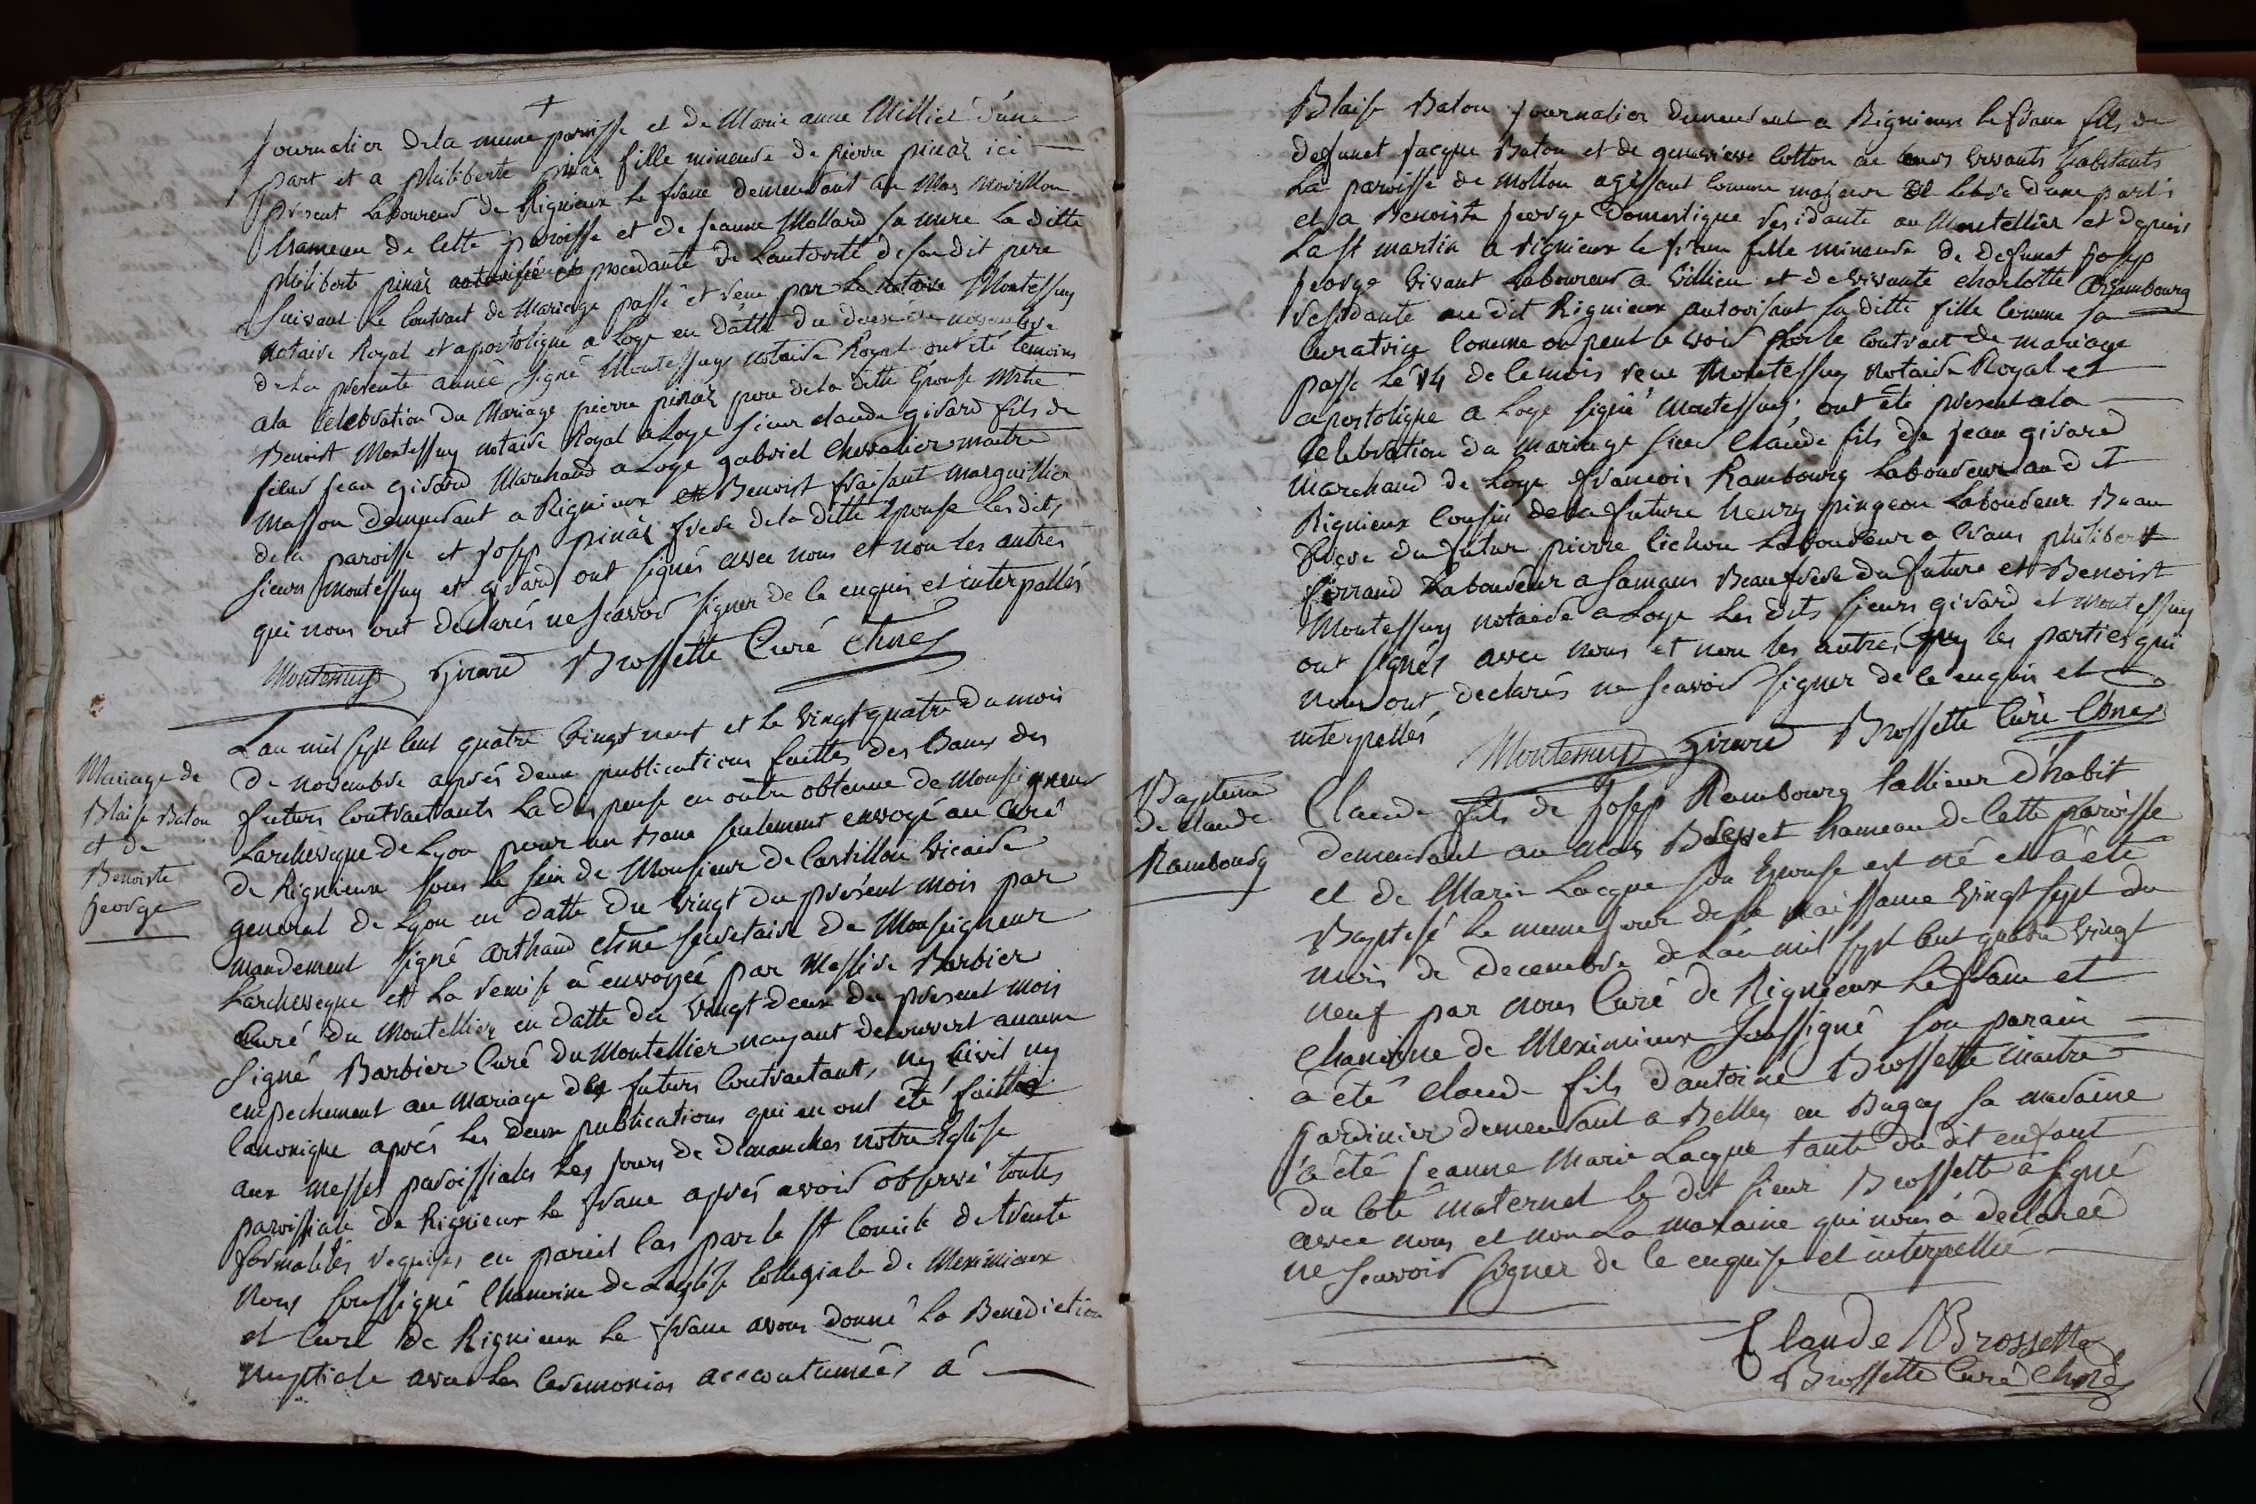 +
journalier dela meme paroisse et de Marie anne Milliet d'une
part et a philiberte pinaz fille mineure de pierre pinaz ici
present Laboureur de Rignieux le franc demeurant au Mas
hameau de cette paroisse et de jeanne Mollard sa mere la ditte
philiberte pinaz procedante de L'autorité deson dit pere
suivant le Contract de Mariage passé et reçu par Le Notaire Montessuy
notaire Royal et apostolique a Loye en datte du de novembre
dela presente année signé Montessuy notaire Royal ont été temoins
ala Celebration du Mariage pierre pinaz pere dela ditte Epouse Mtre
Benoist Montessuy notaire Royal a Loye sieur claude girard fils de
sieur jean girard Marchand a Loye gabriel chevalier maitre
masson demeurant a Rignieux et Benoist fraisant marguillier
dela paroisse et josep pinaz frere dela ditte Epouse Les dits
sieurs Montessuy et girard ont signés avec nous et non les autres
qui nous ont declarés ne scavoir signer de ce enquis et interpellés
Montessuy Girard Brossette Curé Chne
Mariage de
Blaise Baton
et de
Benoiste
george
L'an mil sept cent quatre vingt neuf et le vingt quatre du mois
de novembre aprés deux publications faittes des Bans des
futurs Contractants La dispense en outre obtenue de Monseigneur
Larcheveque de Lyon pour un Banc seulement envoyé au Curé
de Rignieux sous le sein de Monsieur de Castillon vicaire
general de Lyon en datte du vingt du présent mois par
mandement signé arthaud chne secretaire de Monseigneur
Larcheveque et La remise a envoyée par Messire Barbier
Curé du Montellier en datte du vingt deux du present mois
signé Barbier Curé du Montellier nayant decouvert aucun
empechement au mariage des futurs Contractant, ny Civil ny
Canonique aprés les deux publications qui en ont été faitte
aux messes paroissiales les jours de dimanches notre Eglise
paroissiale de Rignieux le franc aprés avoir observé toutes
formalités requises en pareil Cas par le St Concile de trente
Nous soussigné Chanoine de Leglise Collegiale de Meximieux
et Curé de Rignieux le franc avons donné la Benediction
nuptiale avec Les Ceremonies accoutumées á
Blaise Baton journalier demeurant a Rignieux le franc fils de
defunct jacque Baton et de genevieve Cotton de leurs vivants habitants
La paroisse de Mollon agissant comme majeur et libre d'une part
et a Benoiste george Domestique residante au Montellier et depuis
La St martin a rignieux le franc fille mineure de defunct josep
george vivant Laboureur a villieu et de vivante charlotte Rambourg
residante au dit Rignieux autorisant sa ditte fille comme sa
curatrice comme on peut le voir par le Contract de mariage
passé Le 14 de ce mois reçu Montessuy Notaire Royal et
apostolique a Loye signé Montessuy; ont été present ala
Celebration du Mariage sieur Claude fils de jean girard
Marchand de Loye francois Rambourg Laboureur au dit
Rignieux Cousin dela future henry pingeon Laboureur Beau
frere du futur pierre Cichon Laboureur a Crans philibert
ferrand Laboureur a Samans Beaufrere du future et Benoist
Montessuy notaire a Loye Les dits sieurs girard et Montessuy
ont signés avec nous et non les autres ny les parties qui
nous ont declarés ne scavoir signer de ce enquis et
interpellés
Montessuy Girard Brossette Curé Chne
Bapteme
de claude
Rambourg
Claude fils de josep Rambourg tallieur d'habit
demeurant au mas hameau de Cette paroisse
et de Marie Lacque son Epouse est né et a été
Baptisé le meme jour de sa naissance vingt sept du
mois de decembre de L'an mil sept Cent quatre vingt
neuf par nous Curé de Rignieux Le franc et
Chanoine de Meximieux soussigné son parain
a été claude fils d'antoine Brossette maitre
jardinier demeurant a Belley en Bugey sa maraine
a été jeanne Marie Lacque tante du dit enfant
du Coté maternel le dit sieur Brossette a signé
avec nous et non La maraine qui nous á declareé
ne scavoir signer de ce enquise et interpellée
Claude Brossette
Brossette Curé Chne